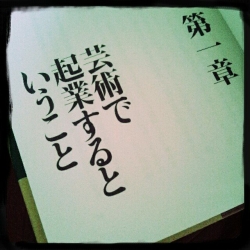 第一章
芸術で
起業すると
いうこと